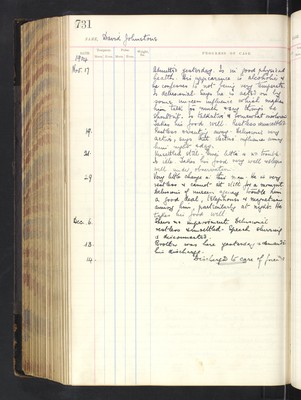 731
NAME David Johnstone
DATE Temperature Pulse Weight PROGRESS OF CASE
Morn. Even. Morn. Even.
1904
Nov. 17 Admitted yesterday. Is in good physical
health. His appearance is alcoholic &
he confesses to not being very temperate.
Is delusional: says he is acted on by
some unseen influence which makes
him talk so much & say things he
shouldn't. Is talkative & somewhat
Takes his food well. Restless & unsettled
19. Restless
active, says that electric influence
him night & day.
21. Unsettled still,
to ills. Takes his food very well & sleeps
well under observation.
29 Very little change in this man. He is very
restless & cannot sit still for a moment.
Delusions of unseen agency trouble him
a good deal, telephones & magnetism
him, particularly at night. He
takes his food well.
Dec. 6. Shews no improvement. Delusional
restless & unsettled. Speech slurring
& disconnected.
13. Brother was here yesterday & demanded
his discharge.
14. Discharged to care of friends